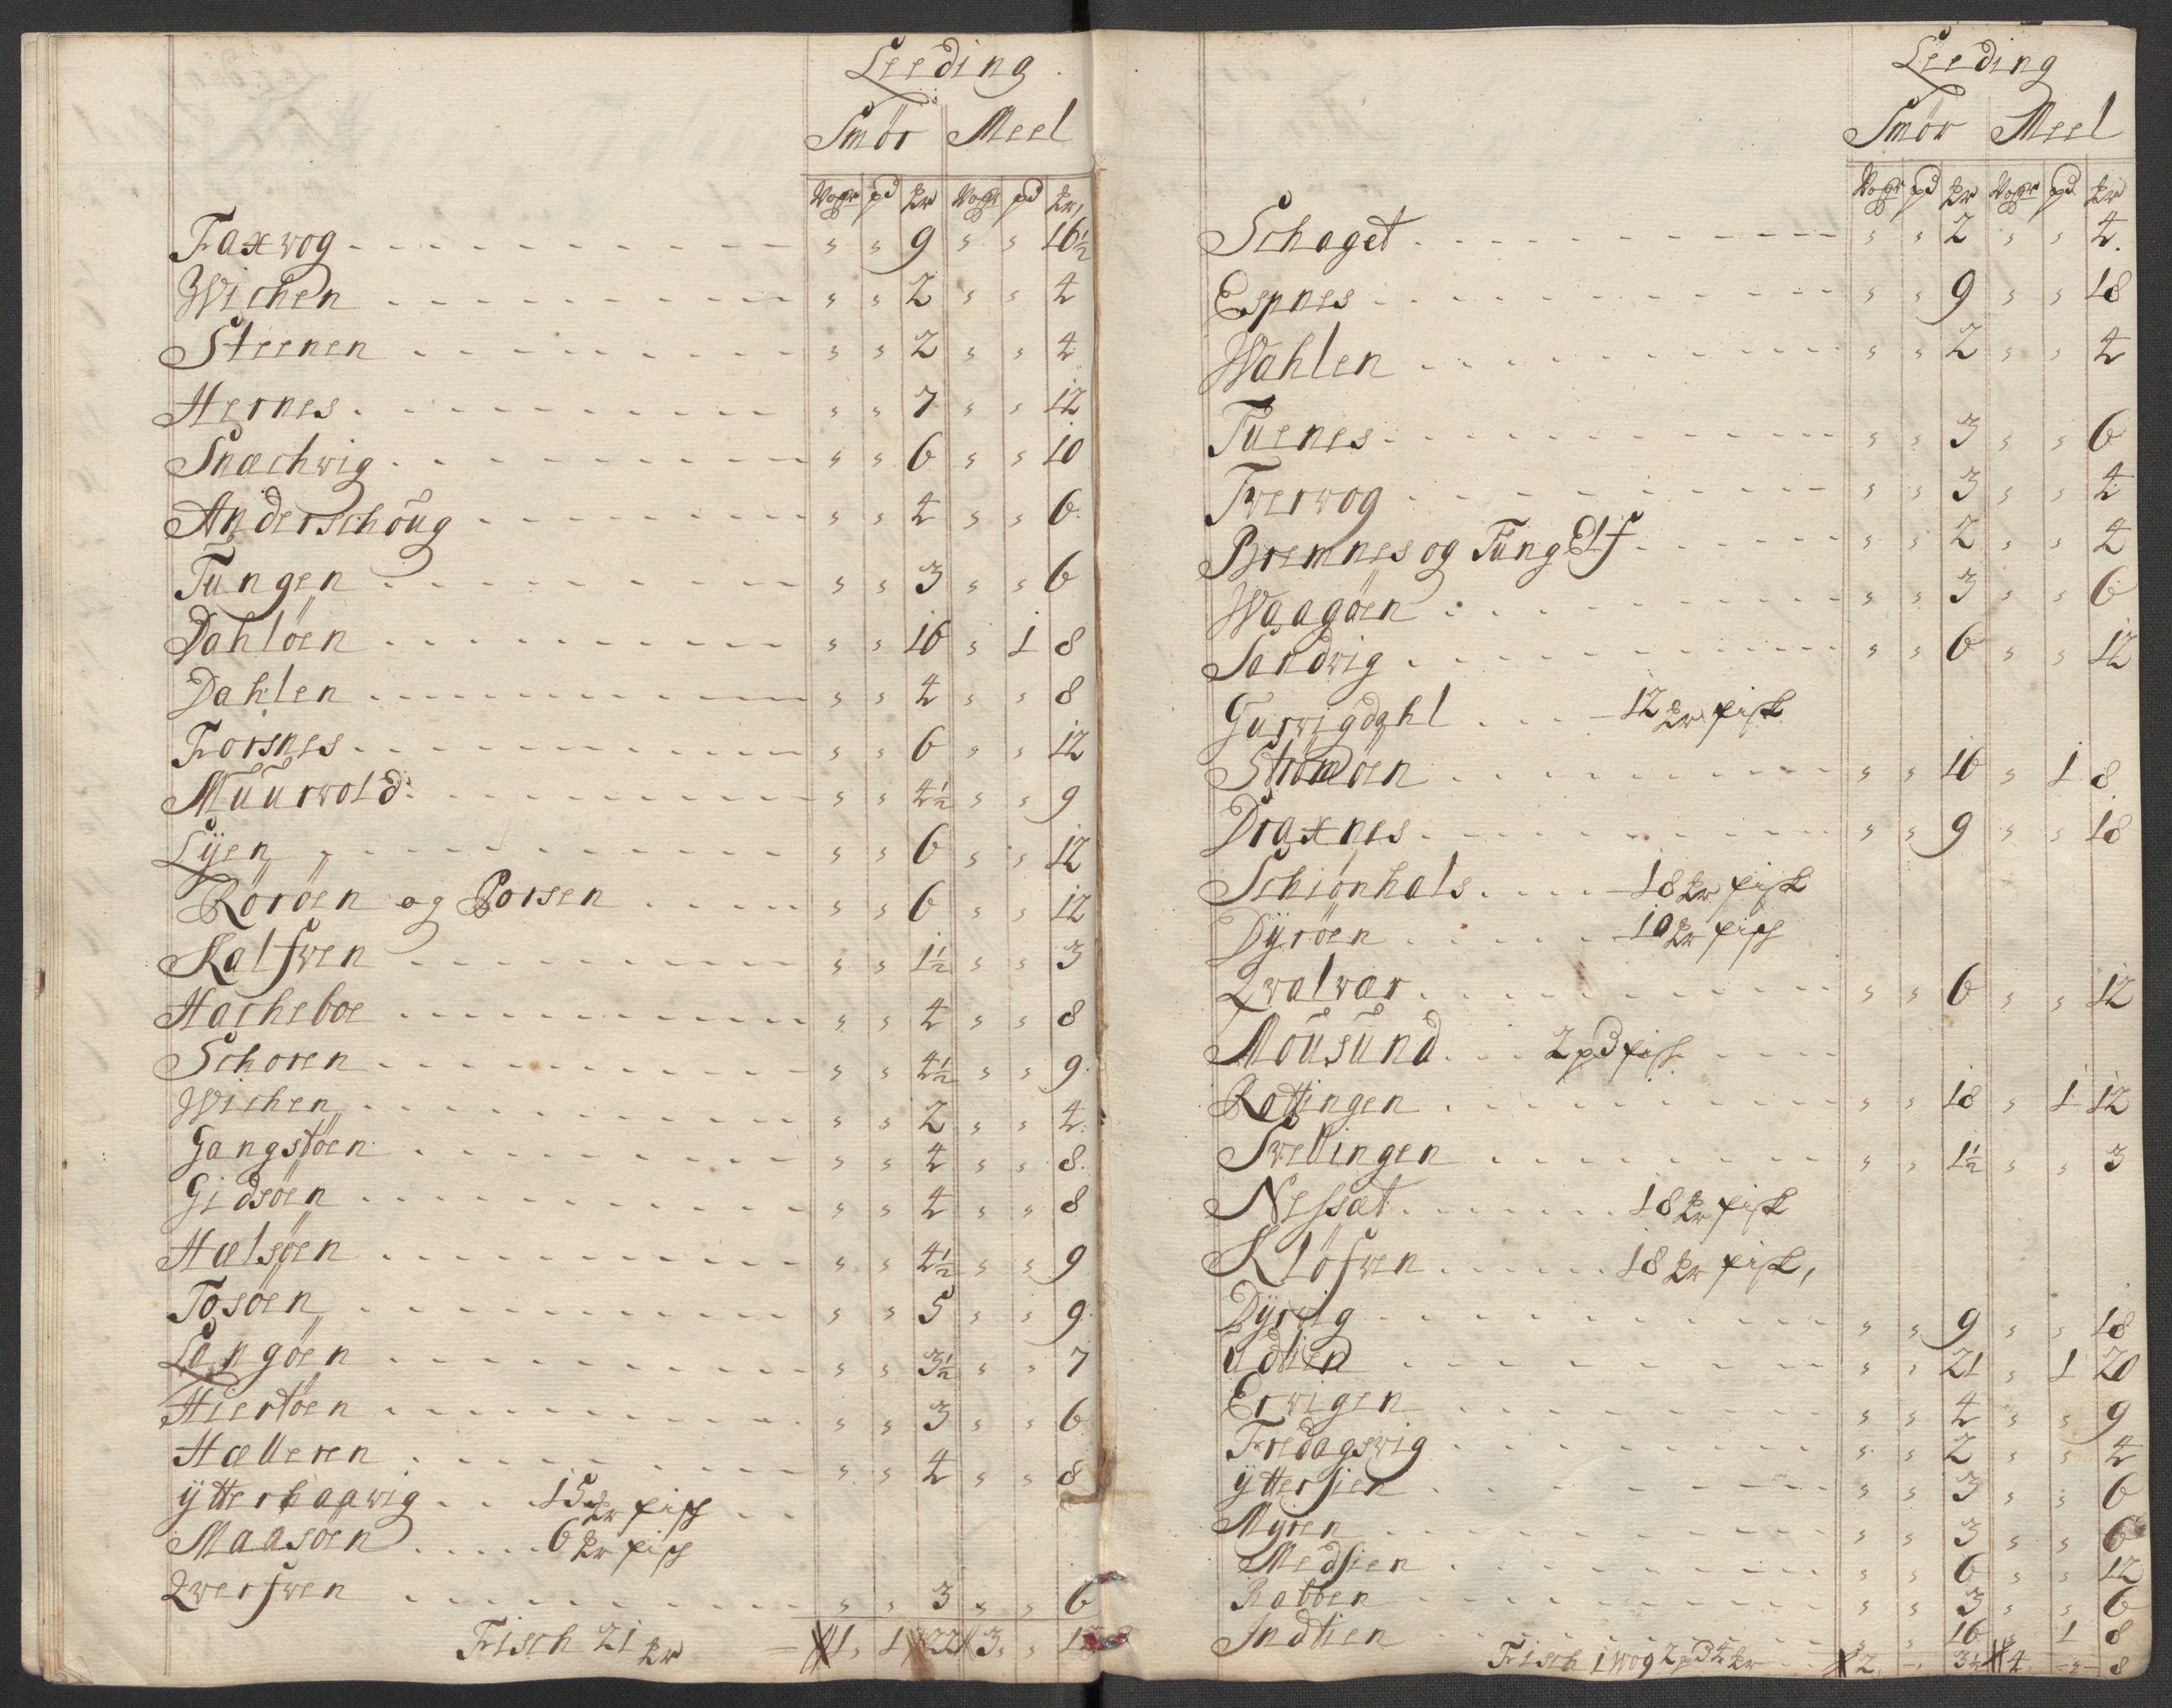 Leeding
Smör Meel
Woger pd Lr Woger pd Lr
Faxvog - - - " " 9 " " 16½
Wichen - - - " " 2 " " 4
Steenen - - - " " 2 " " 4
Hernes - - - " " 7 " " 12
Snæchvig - - - " " 6 " " 10
Anderschoug - - - " " 4 " " 6
Tungen - - - " " 3 " " 6
Dahlöen - - - " " 16 " 1 8
Dahlen - - - " " 4 " " 8
Forsnes - - - " " 6 " " 12
Muurvold - - - " " 4½ " " 9
Lÿen - - - " " 6 " " 12
Röröen og Porsen - - - " " 6 " " 12
Kalfven - - - " " 1½ " " 3
Hacheboe - - - " " 4 " " 8
Schoren - - - " " 4½ " " 9
Wichen - - - " " 2 " " 4
Gangstöen - - - " " 4 " " 8
Gidsöen - - - " " 4 " " 8
Hælsöen - - - " " 4½ " " 9
Tosöen - - - " " 5 " " 9
Langöen - - - " " 3½ " " 7
Hiertöen - - - " " 3 " " 6
Hælleren - - - " " 4 " " 8
ÿtterhaavig - - 15 Lr fisch - -
Maasöen - - - 6 Lr fisch
Qverfven - - - " " 3 " " 6
Fisch 21 Lr - 1 " 1 22 3 " "
Leeding
Smör Meel
Woger pd Lr Woger pd Lr
Schaget - - - " " 2 " " 4
Espnes - - - " " 9 " " 18
Wahlen - - - " " 2 " " 4
Tuenes - - - " " 3 " " 6
Tvervog - - - " " 3 " " 4
Bremnes og TungElf - - - " " 2 " " 4
Waagöen - - - " " 3 " " 6
Sandvig - - - " " 6 " " 12
Gurvigdahl - - - 12 Lr fisk
Strömöen - - - " " 16 " 1 8
Draxnes - - - " " 9 " " 18
Schiönhals - - - 18 Lr fisk
Dÿröen - - - 10 Lr fisch
Qvalvær - - - " " 6 " " 12
Mousund - - 2 pd fisk - - -
Rottingen - - - " " 18 " 1 12
Svellingen - - - " " 1½ " " 3
Nessæt - - - 18 Lr fisk
Klöfven - - - 18 Lr fisk,
Dÿrvig - - - " " 9 " " 18
Udtien - - - " " 21 " 1 20
Ervigen - - - " " 4 " " 9
Fredagsvig - - - " " 2 " " 4
ÿttersien - - - " " 3 " " 6
Myren - - - " " 3 " " 6
Medsien - - - " " 6 " " 12
Rabben - - - " " 3 " " 6
Indtien - - - " " 16 " 1 8
Fisch 1 Wog 2 pd 4 Lr - - 2 - 3½ 4 - " - 8